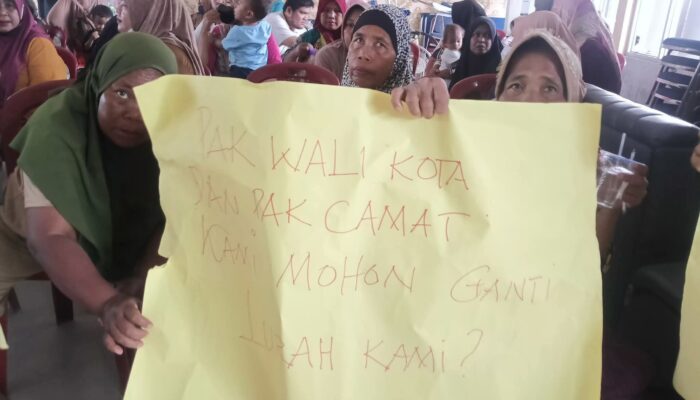 PAK WALI KOTA
DAN PAK CAMAT
KAMI MOHON GANTI
LURAH KAMI?